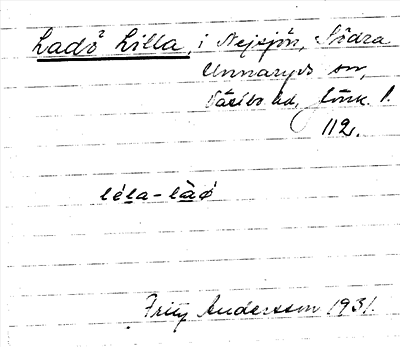 Ladö Lilla, i Nejsjön, Södra
Unnaryds sn,
Västbo hd, Jönk. l.
112.
léla - làø
Fritz Andersson 1931.